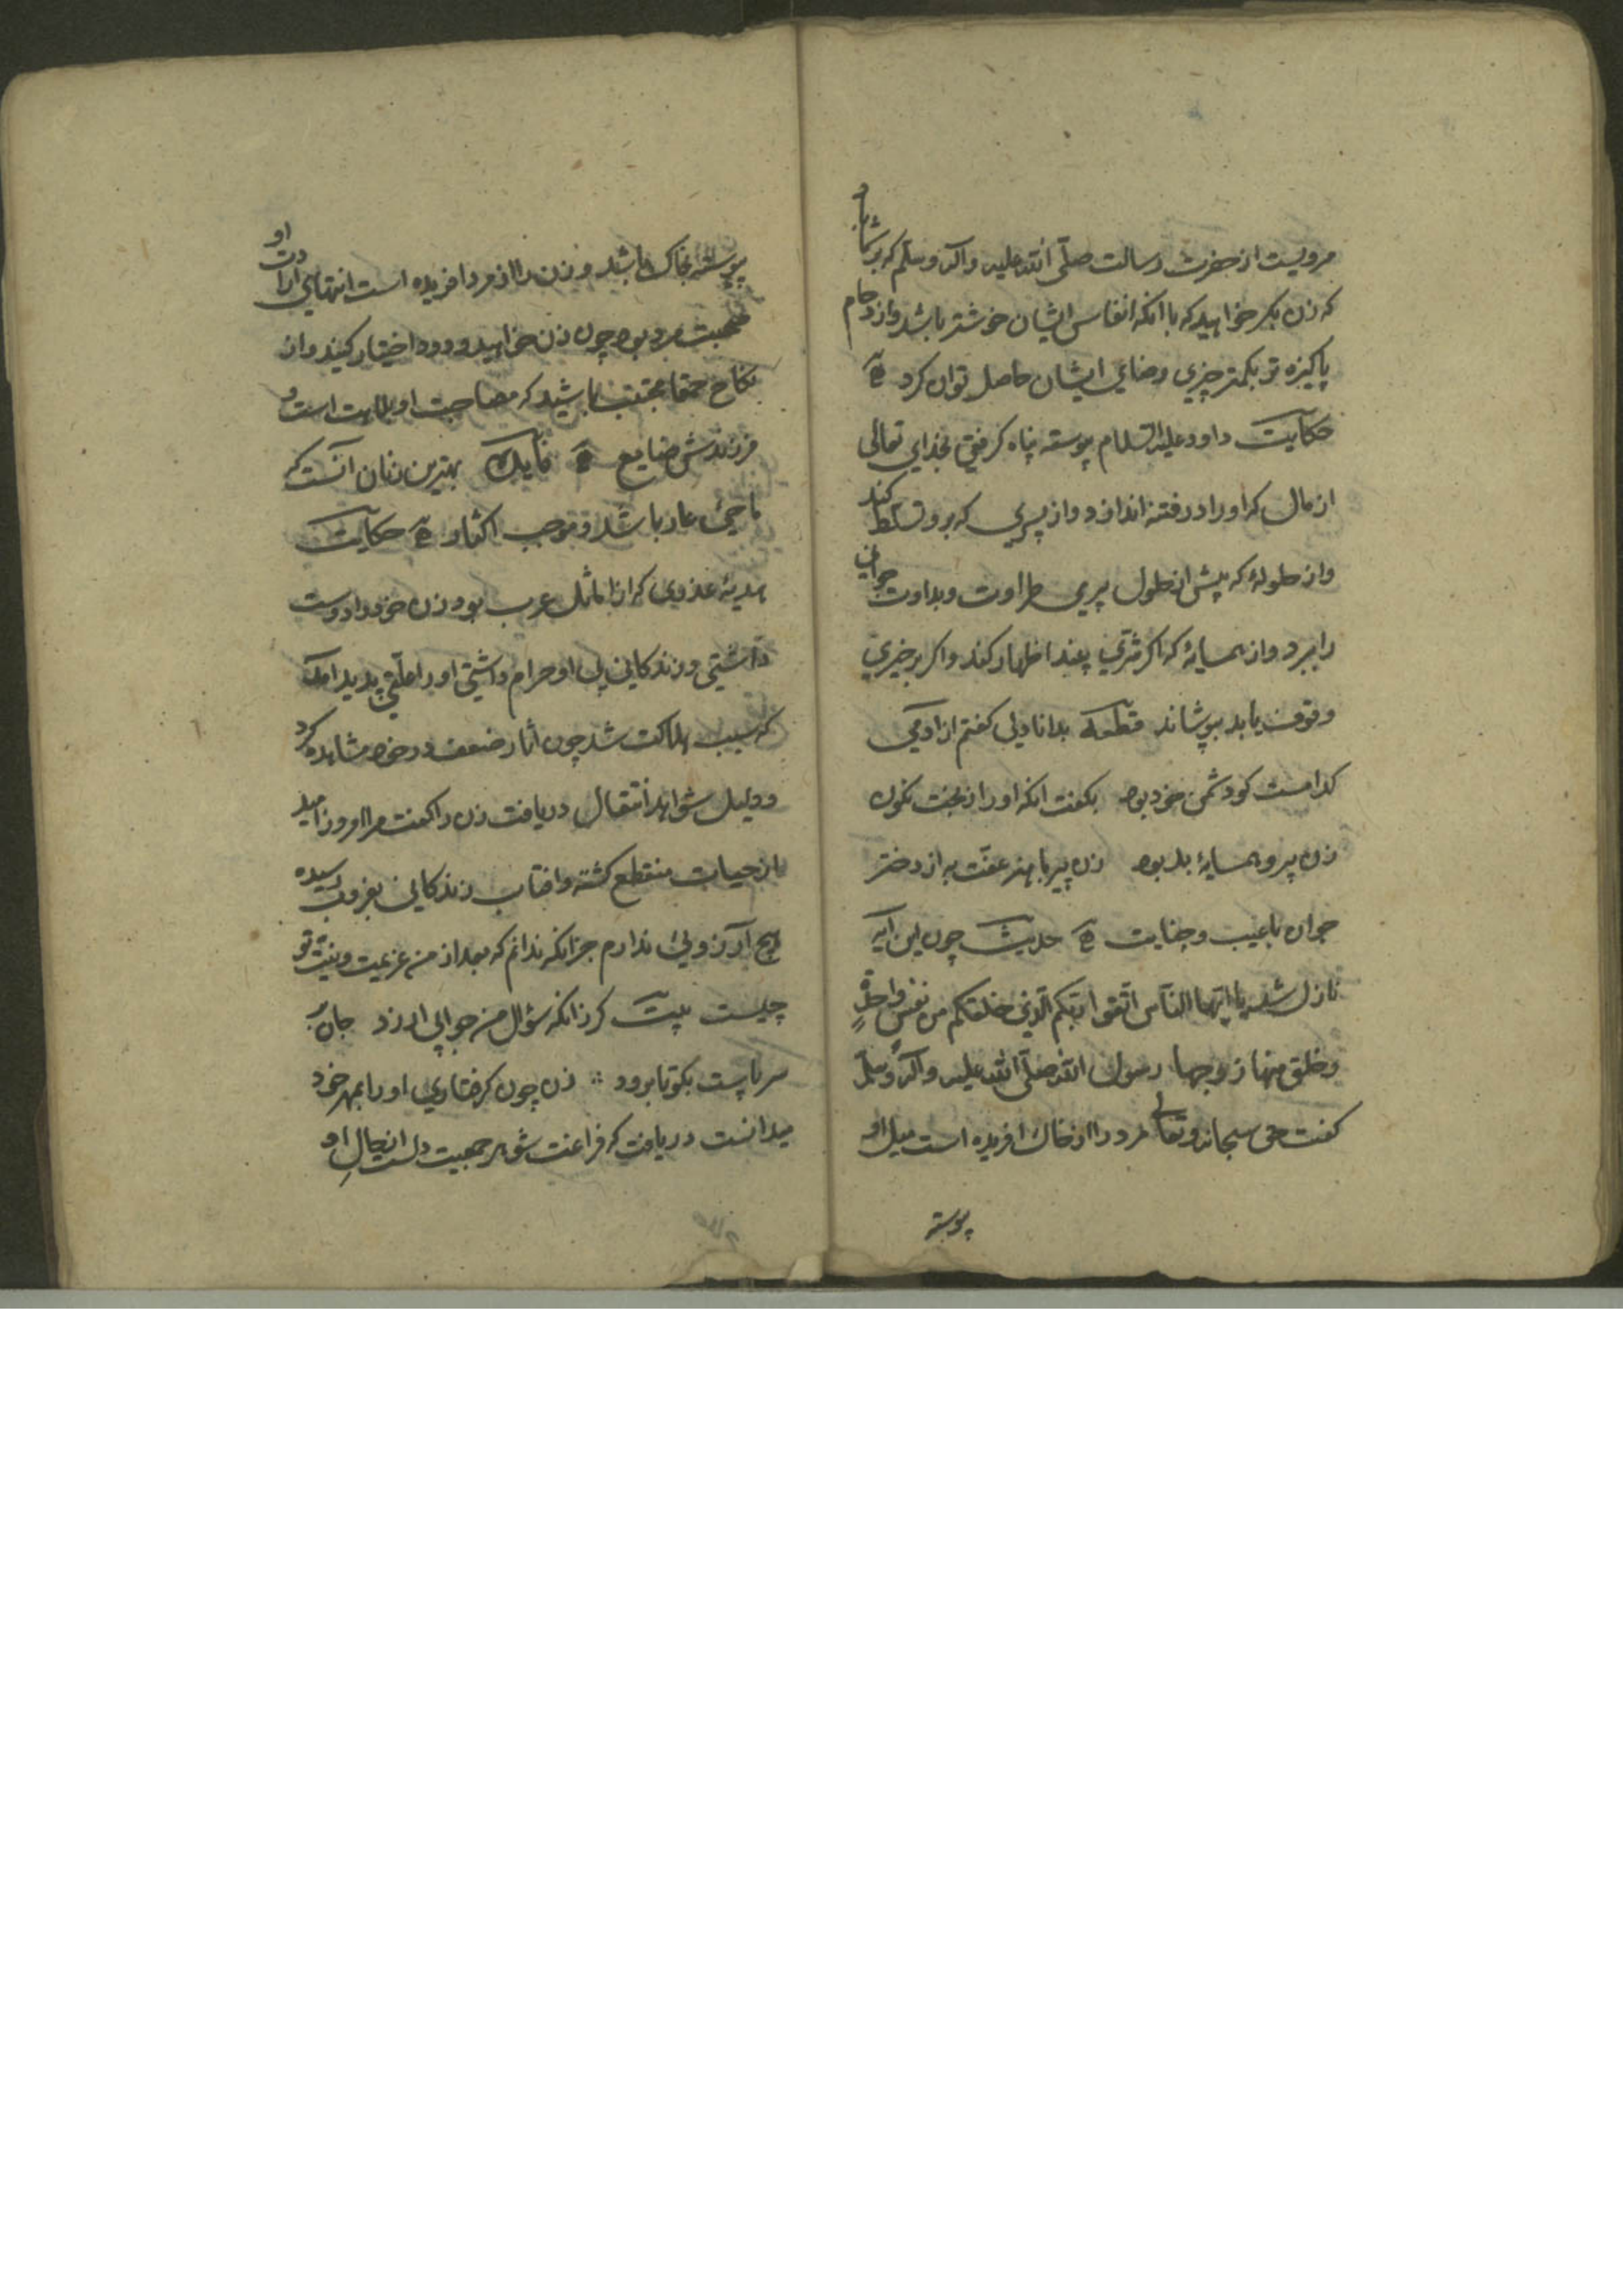 مرویست از حضرت رسالت صلّی الله علیه وآله وسلّم که بر شما باد
که زن بکر خواهید که با انکه انفاس ایشان خوشتر باشد وازدحام
پاکیزه تر بکمتر چیزی رضای ایشان حاصل توان کرد
حکایت داود علیه السلام پیوسته پناه کرفتی بخدای تعالی
از مال که او را در فتنه اندازد و از پسری که برو تسلط کند
واز حلولهٔ که پیش از حلول پیری طراوت وبداوت جوانی
را ببرد واز همسایهٔ که اکر شرّی بیند اظهار کند واکر بر خیری
وقوف یابد بپوشاند قطعه بدانا دلی کفتم از ادمی
کدامست کو دشمن خود بود بکفت انکه او را از بخت نکون
زن پیر و همسایهٔ بد بود زن پیر با هنر عفّت به از دختر
جوان با عیب وجنایت حدیث چون این آیه
نازل شد یا ایّها النّاس اتّقوا ربّکم الّذی خلقکم من نفسٍ واحدةٍ
وخلق منها زوجها رسول الله صلّی الله علیه وآله وسلّم
کفت حق سبحانه وتعالی مرد را از خاک افریده است میل او
پیوسته
پیوسته بخاک باشد و زن را از مرد افریده است انتهای ارادت او
صحبت مرد بود چون زن خواهید ودود اختیار کنید واز
نکاح حمقا مجتنب باشید که مصاحبت او بلاهت است و
فرزندش ضایع بهترین زنان آنست که
ماحیٔ عار باشد و موجب اکثار حکایت
هدبهٔ عذوی که از اماثل عرب بود زن خود را دوست
داشتی و زندکانی بی او حرام داشتی او را علّتی پدید امد
که سبب هلاکت شد چون اثار ضعف در خود مشاهده کرد
ودلیل شواهد انتقال دریافت زن را کفت مرا امروز امید
از حیات منقطع کشته وافتاب زندکانی بغروب رسیده
هیچ آرزویٔ ندارم جز انکه ندانم که بعد از من عزیمت ونیّت تو
چیست بیت کر زانکه سؤال من جوابی ارزد جان بر
سر پاست بکو تا برود زن چون کرفتاری او را بمهر خود
میدانست دریافت که فراغت شوهر جمعیت دلست از حال او